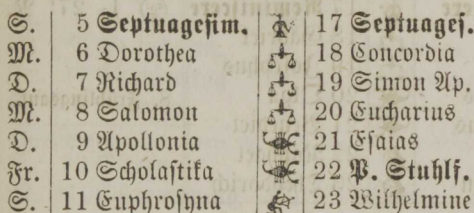 S. 5 Septuagesim. 17 Septuages.
M. 6 Dorothea 18 Concordia
D. 7 Richard 19 Simon Ap.
M. 8 Salomon 20 Eucharius
D. 9 Apollonia 21 Esaias
Fr. 10 Scholastika 22 P. Stuhlf.
S. 11 Euphrosyna 23 Wilhelmine